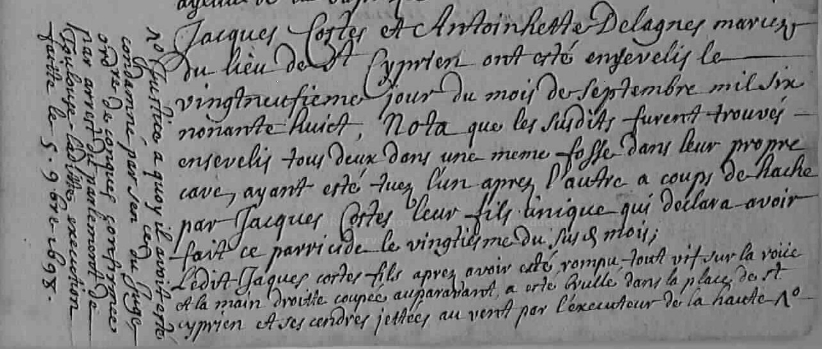 Jacques Costes et Antoinhette Delagnes mariez
du lieu de St Cyprien ont esté ensevelis le
vingtneufieme jour du mois de septembre mil six
nonante huict, Nota que les susdits furent trouvés
ensevelis tous deux dans une meme fosse dans leur propre
cave, ayant esté tuez l'un aprez l'autre a coups de hache
par Jacques Costes leur fils unique qui declara avoir
fait ce parricide le vingtiesme du susd mois;
Ledit Jaques costes fils aprez avoir esté rompu tout vif sur la roüe
et la main droitte coupée auparavant, a esté brullé dans la place de st
cyprien et ses cendres jettées au vent par l'executeur de la haute No
No Justice a quoy il avoit esté
condamné par sen du Juge
ord re de conques confirmée
par arrest du parlement de
Toulouse ladite execution
faitte le 5. 9bre 1698.